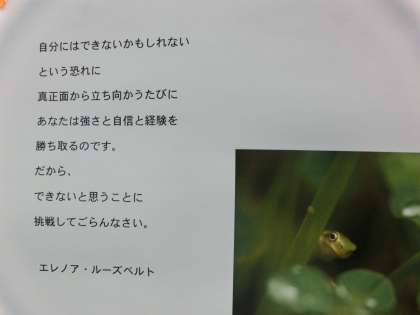 自分にはできないかもしれない
という恐れに
真正面から立ち向かうたびに
あなたは強さと自信と経験を
勝ち取るのです。
だから、
できないと思うことに
挑戦してごらんなさい。
エレノア・ルーズベルト